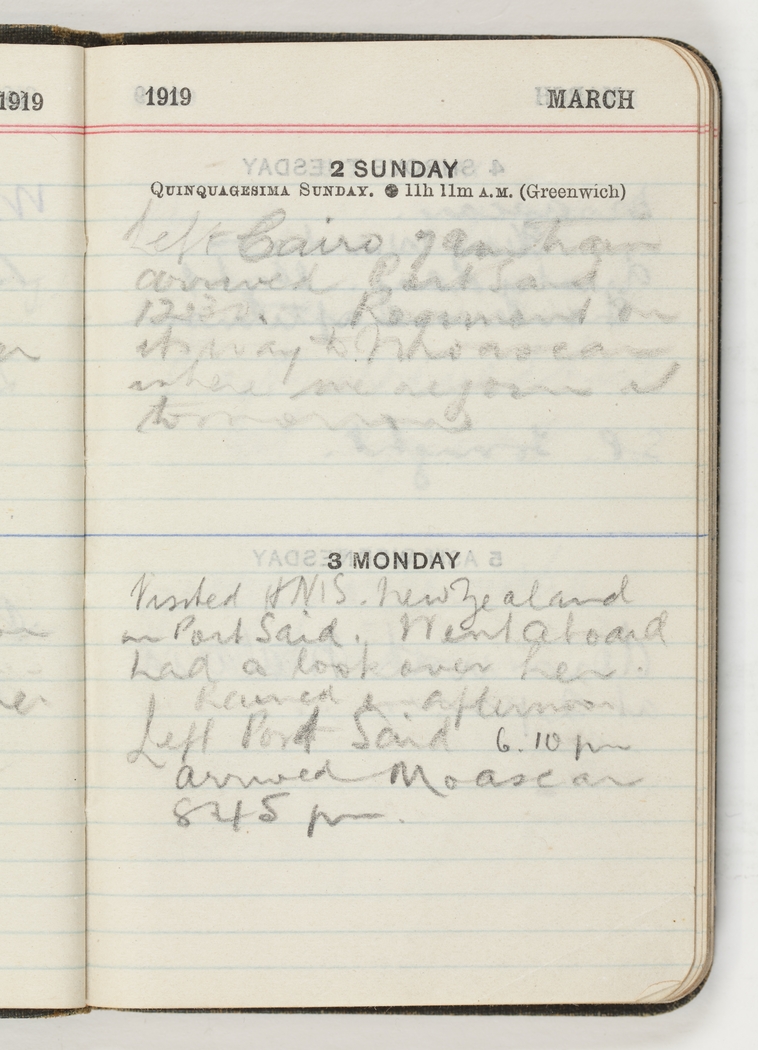 1919
1919 MARCH
2 SUNDAY
QUINQUAGESIMA SUNDAY. 11h 11m A.M. (Greenwich)
Left Cairo 7am train
arrived Port Said
1232. Regiment on
its way to Moascar
where we rejoin it
tomorrow
3 MONDAY
Visited HMS. New Zealand
in Port Said. Went aboard
had a look over her.
Rained in afternoon
Left Port Said 6.10 pm
arrived Moascar
845 pm.